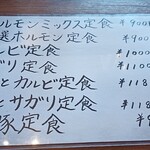 ルモンミックス定食 ¥900
選ホルモン定食 ¥900
ルビ定食 ¥1000
ガリ定食 ¥1100
とカルビ定食 ¥118
とサガリ定食 ¥118
豚定食 ¥9